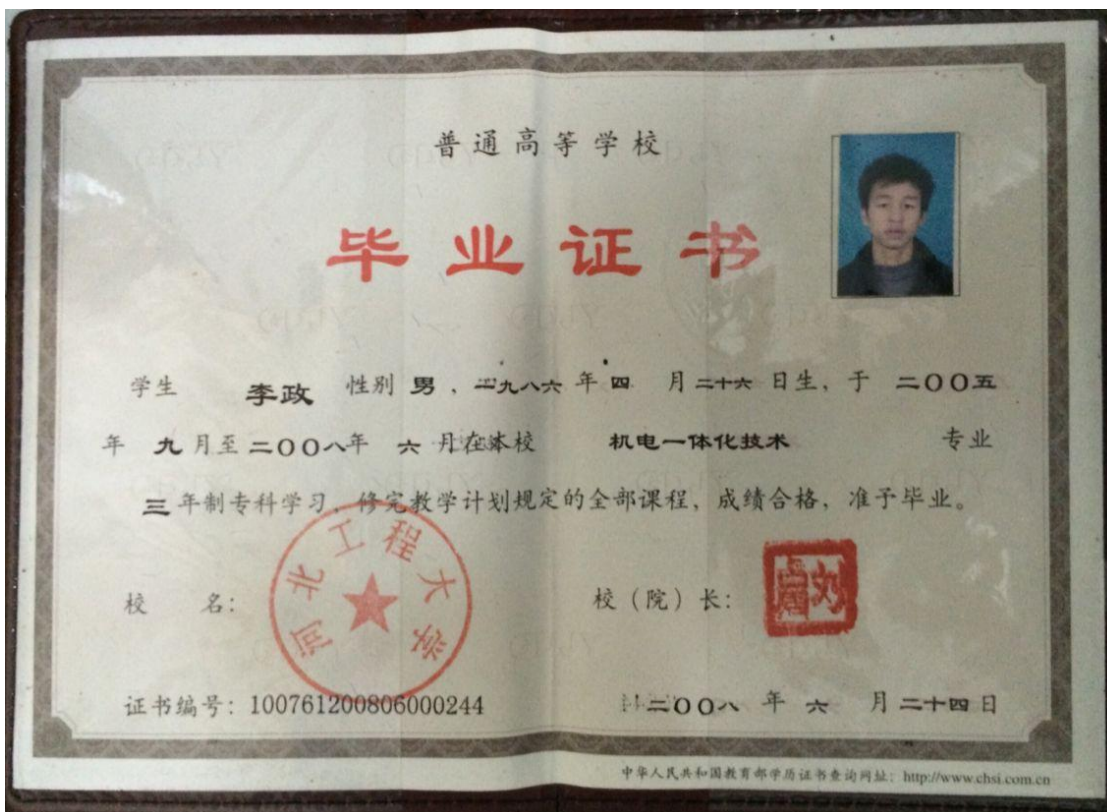 普通高等学校
毕业证书
学生 李政 性别 男，一九八六年四月二十六日生，于二〇〇五
年九月至二〇〇八年六月在本校 机电一体化技术 专业
三年制专科学习，修完教学计划规定的全部课程，成绩合格，准予毕业。
校名：河北工程大学 校（院）长：
证书编号：100761200806000244 二〇〇八年六月二十四日
中华人民共和国教育部学历证书查询网址：http://www.chsi.com.cn